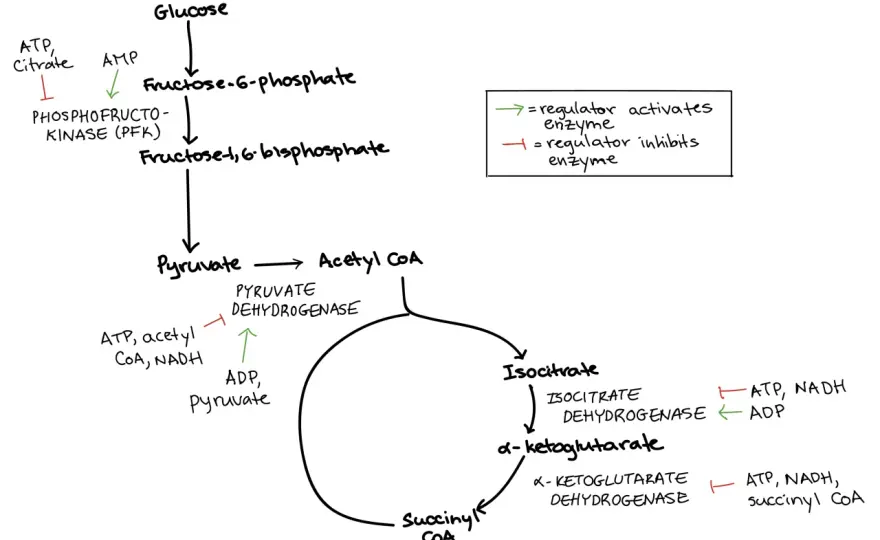 Glucose
ATP,
citrate
AMP
Fructose-6-phosphate
PHOSPHOFRUCTO-
KINASE (PFK)
Fructose-1,6-bisphosphate
= regulator activates
enzyme
= regulator inhibits
enzyme
Pyruvate
Acetyl CoA
PYRUVATE
DEHYDROGENASE
ATP, acetyl
CoA, NADH
ADP,
pyruvate
Isocitrate
ISOCITRATE
DEHYDROGENASE
ATP, NADH
ADP
α-ketoglutarate
α-KETOGLUTARATE
DEHYDROGENASE
ATP, NADH,
succinyl CoA
Succinyl
CoA